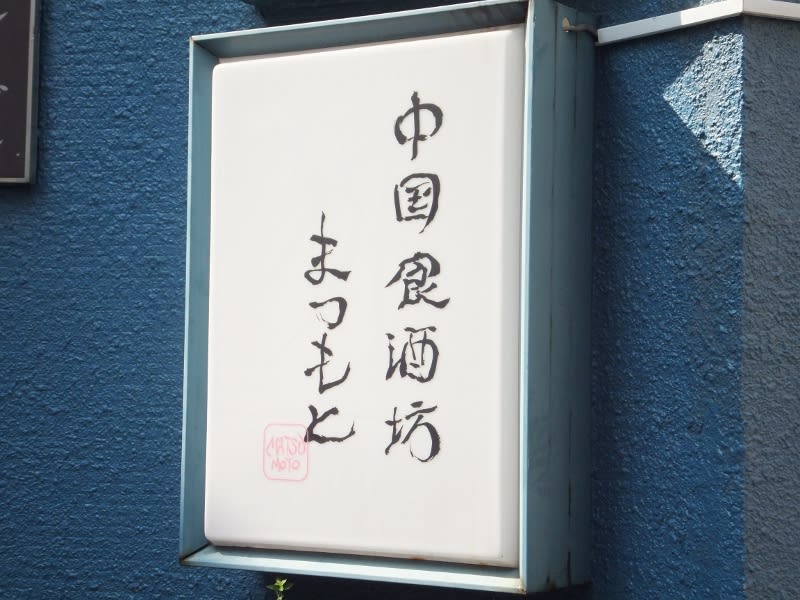 中国食酒坊
まつもと
MATSU
MOTO